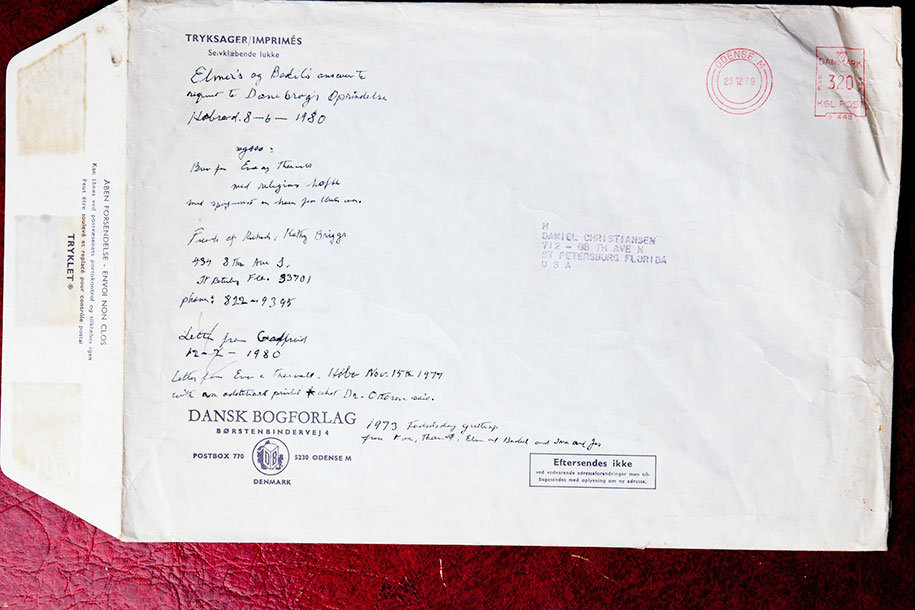 TRYKSAGER/IMPRIMÉS
Selvklæbende lukke
Elmer's og Bodil's answer to
request to Danebrog's Oprindelse
Hobro d. 8-6-1980
også:
Brev fra Eva og Thorvald
med religiøs hefte
med
Friends of Richard, Kathy Briggs
434 8 The Ave S.
St Petersburg Fla. 33701
phone: 822-9395
Letter from
12-7-1980
Letter from Eva & Thorvald. Hobro Nov. 15th 1977
with an additional printed what Dr. Ottosen said.
DANSK BOGFORLAG
BØRSTENBINDERVEJ 4
POSTBOX 770
DB
5230 ODENSE M
DENMARK
1973 Fødselsdag greetings
from Eva, Thorvald, Elmer og Bodil and and
ODENSE M
DANMARK
320
KGL POST
M
DANIEL CHRISTIANSEN
712 - 88 TH AVE N
ST PETERSBURG FLORIDA
U S A
Eftersendes ikke
ved vedvarende adresseforandringer man til-
bagesendes med oplysning om ny adresse.
ÅBEN FORSENDELSE - ENVOI NON CLOS
Kan åbnes ved postvæsenets portokontrol og tilklæbes igen
Peut être soulevé et replacé pour contrôle postal
TRYKLET®